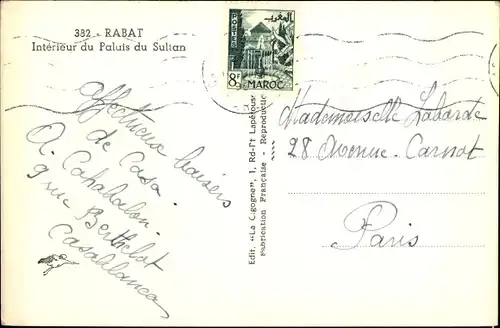 382 - RABAT
Intérieur du Palais du Sultan
POSTES
المغرب
8F
MAROC
Affectueux baisers
de Casa.
A. Cahabalon
9 rue Berthelot
Casablanca
Edit. "La Cigogne", 1, Rd-Pt Lapérouse
Fabrication Française - Reproduction
Mademoiselle Laborde
28 Avenue - Carnot
Paris